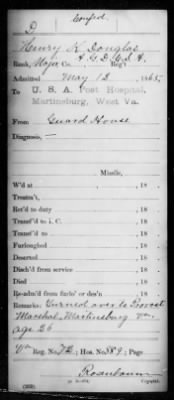 Confed.
D
Henry K Douglas
Rank, Major Co. A. G. D. C. S. A. Reg't
Admitted May 12, 1865,
To U. S. A. Post Hospital,
Martinsburg, West Va.
From Guard House
Diagnosis,
Missile,
W'd at , 18
Treatm't,
Ret'd to duty , 18
Transf'd to I. C. , 18
Transf'd to , 18
Furloughed , 18
Deserted , 18
Disch'd from service , 18
Died , 18
Re-adm'd from furlo' or des'n , 18
Remarks: Turned over to Provost
Marshal, Martinsburg Va.
age 26
Va Reg. No. 72; Hos. No. 889; Page
Copyist.